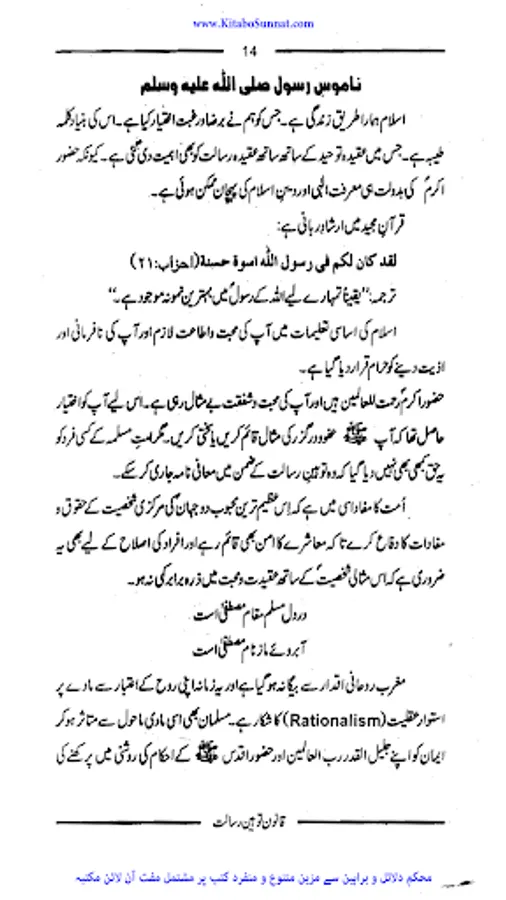 www.KitaboSunnat.com
14
ناموس رسول صلی اللہ علیہ وسلم
اسلام ہمارا طریق زندگی ہے۔ جس کو ہم نے برضا ورغبت اختیار کیا ہے۔ اس کی بنیاد کلمہ
طیبہ ہے۔ جس میں عقیدہ توحید کے ساتھ ساتھ عقیدہ رسالت کو بھی اہمیت دی گئی ہے۔ کیونکہ حضور
اکرمؐ کی بدولت ہی معرفت الٰہی اور دین اسلام کی پہچان ممکن ہوئی ہے۔
قرآن مجید میں ارشاد ربانی ہے:
لقد كان لكم فى رسول الله اسوة حسنة (احزاب:۲۱)
ترجمہ: ’’یقیناً تمہارے لیے اللہ کے رسولؐ میں بہترین نمونہ موجود ہے۔‘‘
اسلام کی اساسی تعلیمات میں آپ کی محبت واطاعت لازم اور آپ کی نافرمانی اور
اذیت دینے کو حرام قرار دیا گیا ہے۔
حضور اکرمؐ رحمت للعالمین ہیں اور آپ کی محبت وشفقت بے مثال رہی ہے۔ اس لیے آپ کو اختیار
حاصل تھا کہ آپ ﷺ عفوودرگزر کی مثال قائم کریں یا سختی کریں۔ مگر امت مسلمہ کے کسی فرد کو
یہ حق کبھی بھی نہیں دیا گیا کہ وہ توہین رسالت کے ضمن میں معافی نامہ جاری کر سکے۔
اُمت کا مفاد اسی میں ہے کہ اِس عظیم ترین محبوب دو جہان کی مرکزی شخصیت کے حقوق و
مفادات کا دفاع کرے تاکہ معاشرے کا امن بھی قائم رہے اور افراد کی اصلاح کے لیے بھی یہ
ضروری ہے کہ اس مثالی شخصیتؐ کے ساتھ عقیدت ومحبت میں ذرہ برابر کمی نہ ہو۔
در دل مسلم مقام مصطفیٰ است
آبروئے ما ز نام مصطفیٰ است
مغرب روحانی اقدار سے بیگانہ ہو گیا ہے اور یہ زمانہ اپنی روح کے اعتبار سے مادے پر
استوار عقلیت (Rationalism) کا شکار ہے۔ مسلمان بھی اسی مادی ماحول سے متاثر ہو کر
ایمان کو اپنے جلیل القدر رب العالمین اور حضور اقدس ﷺ کے احکام کی روشنی میں پرکھنے کی
قانون توہین رسالت
محکم دلائل و براہین سے مزین متنوع و منفرد کتب پر مشتمل مفت آن لائن مکتبہ